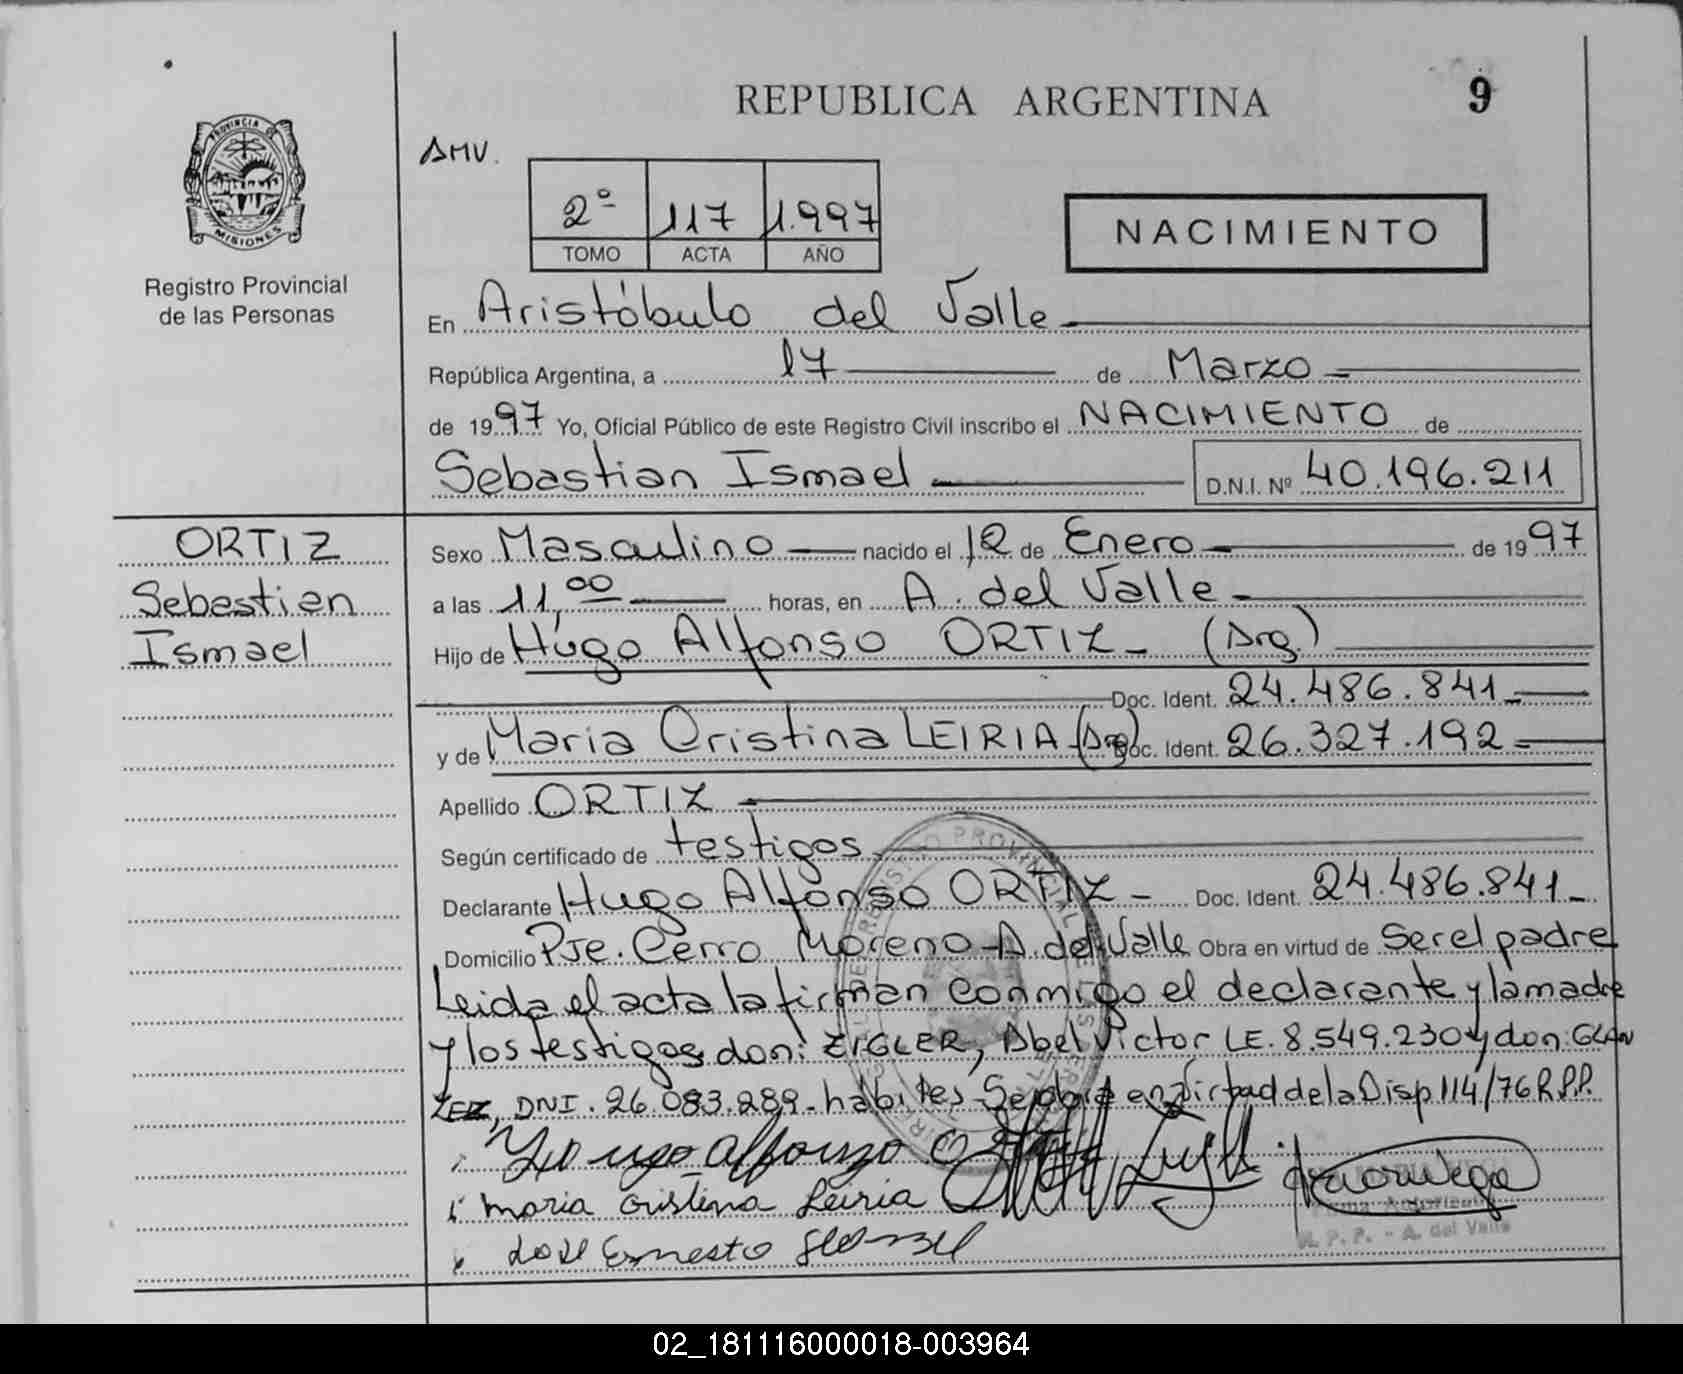 REPUBLICA ARGENTINA
9
PROVINCIA DE
MISIONES
Registro Provincial
de las Personas
AMV.
2º 117 1.997
TOMO ACTA AÑO
NACIMIENTO
En Aristóbulo del Valle
República Argentina, a 17 de Marzo
de 1997 Yo, Oficial Público de este Registro Civil inscribo el NACIMIENTO de
Sebastian Ismael D.N.I. Nº 40.196.211
ORTIZ
Sebastian
Ismael
Sexo Masculino nacido el 12 de Enero de 1997
a las 11,00 horas, en A. del Valle
Hijo de Hugo Alfonso ORTIZ (Arg)
Doc. Ident. 24.486.841
y de Maria Cristina LEIRIA (Arg) Doc. Ident. 26.327.192
Apellido ORTIZ
Según certificado de testigos
Declarante Hugo Alfonso ORTIZ Doc. Ident. 24.486.841
Domicilio Pje. Cerro Moreno-A. del Valle Obra en virtud de Ser el padre
Leida el acta la firman conmigo el declarante y la madre
y los testigos don: ZIGLER, Abel Victor LE. 8.549.230 y don: GLAN
ZEZ, DNI. 26.083.289- hábiles- Se obra en virtud de la Disp 114/76 R.P.P.
Hugo alfonzo
maria cristina Leiria
José Ernesto
R. P. P. - A. del Valle
02_181116000018-003964